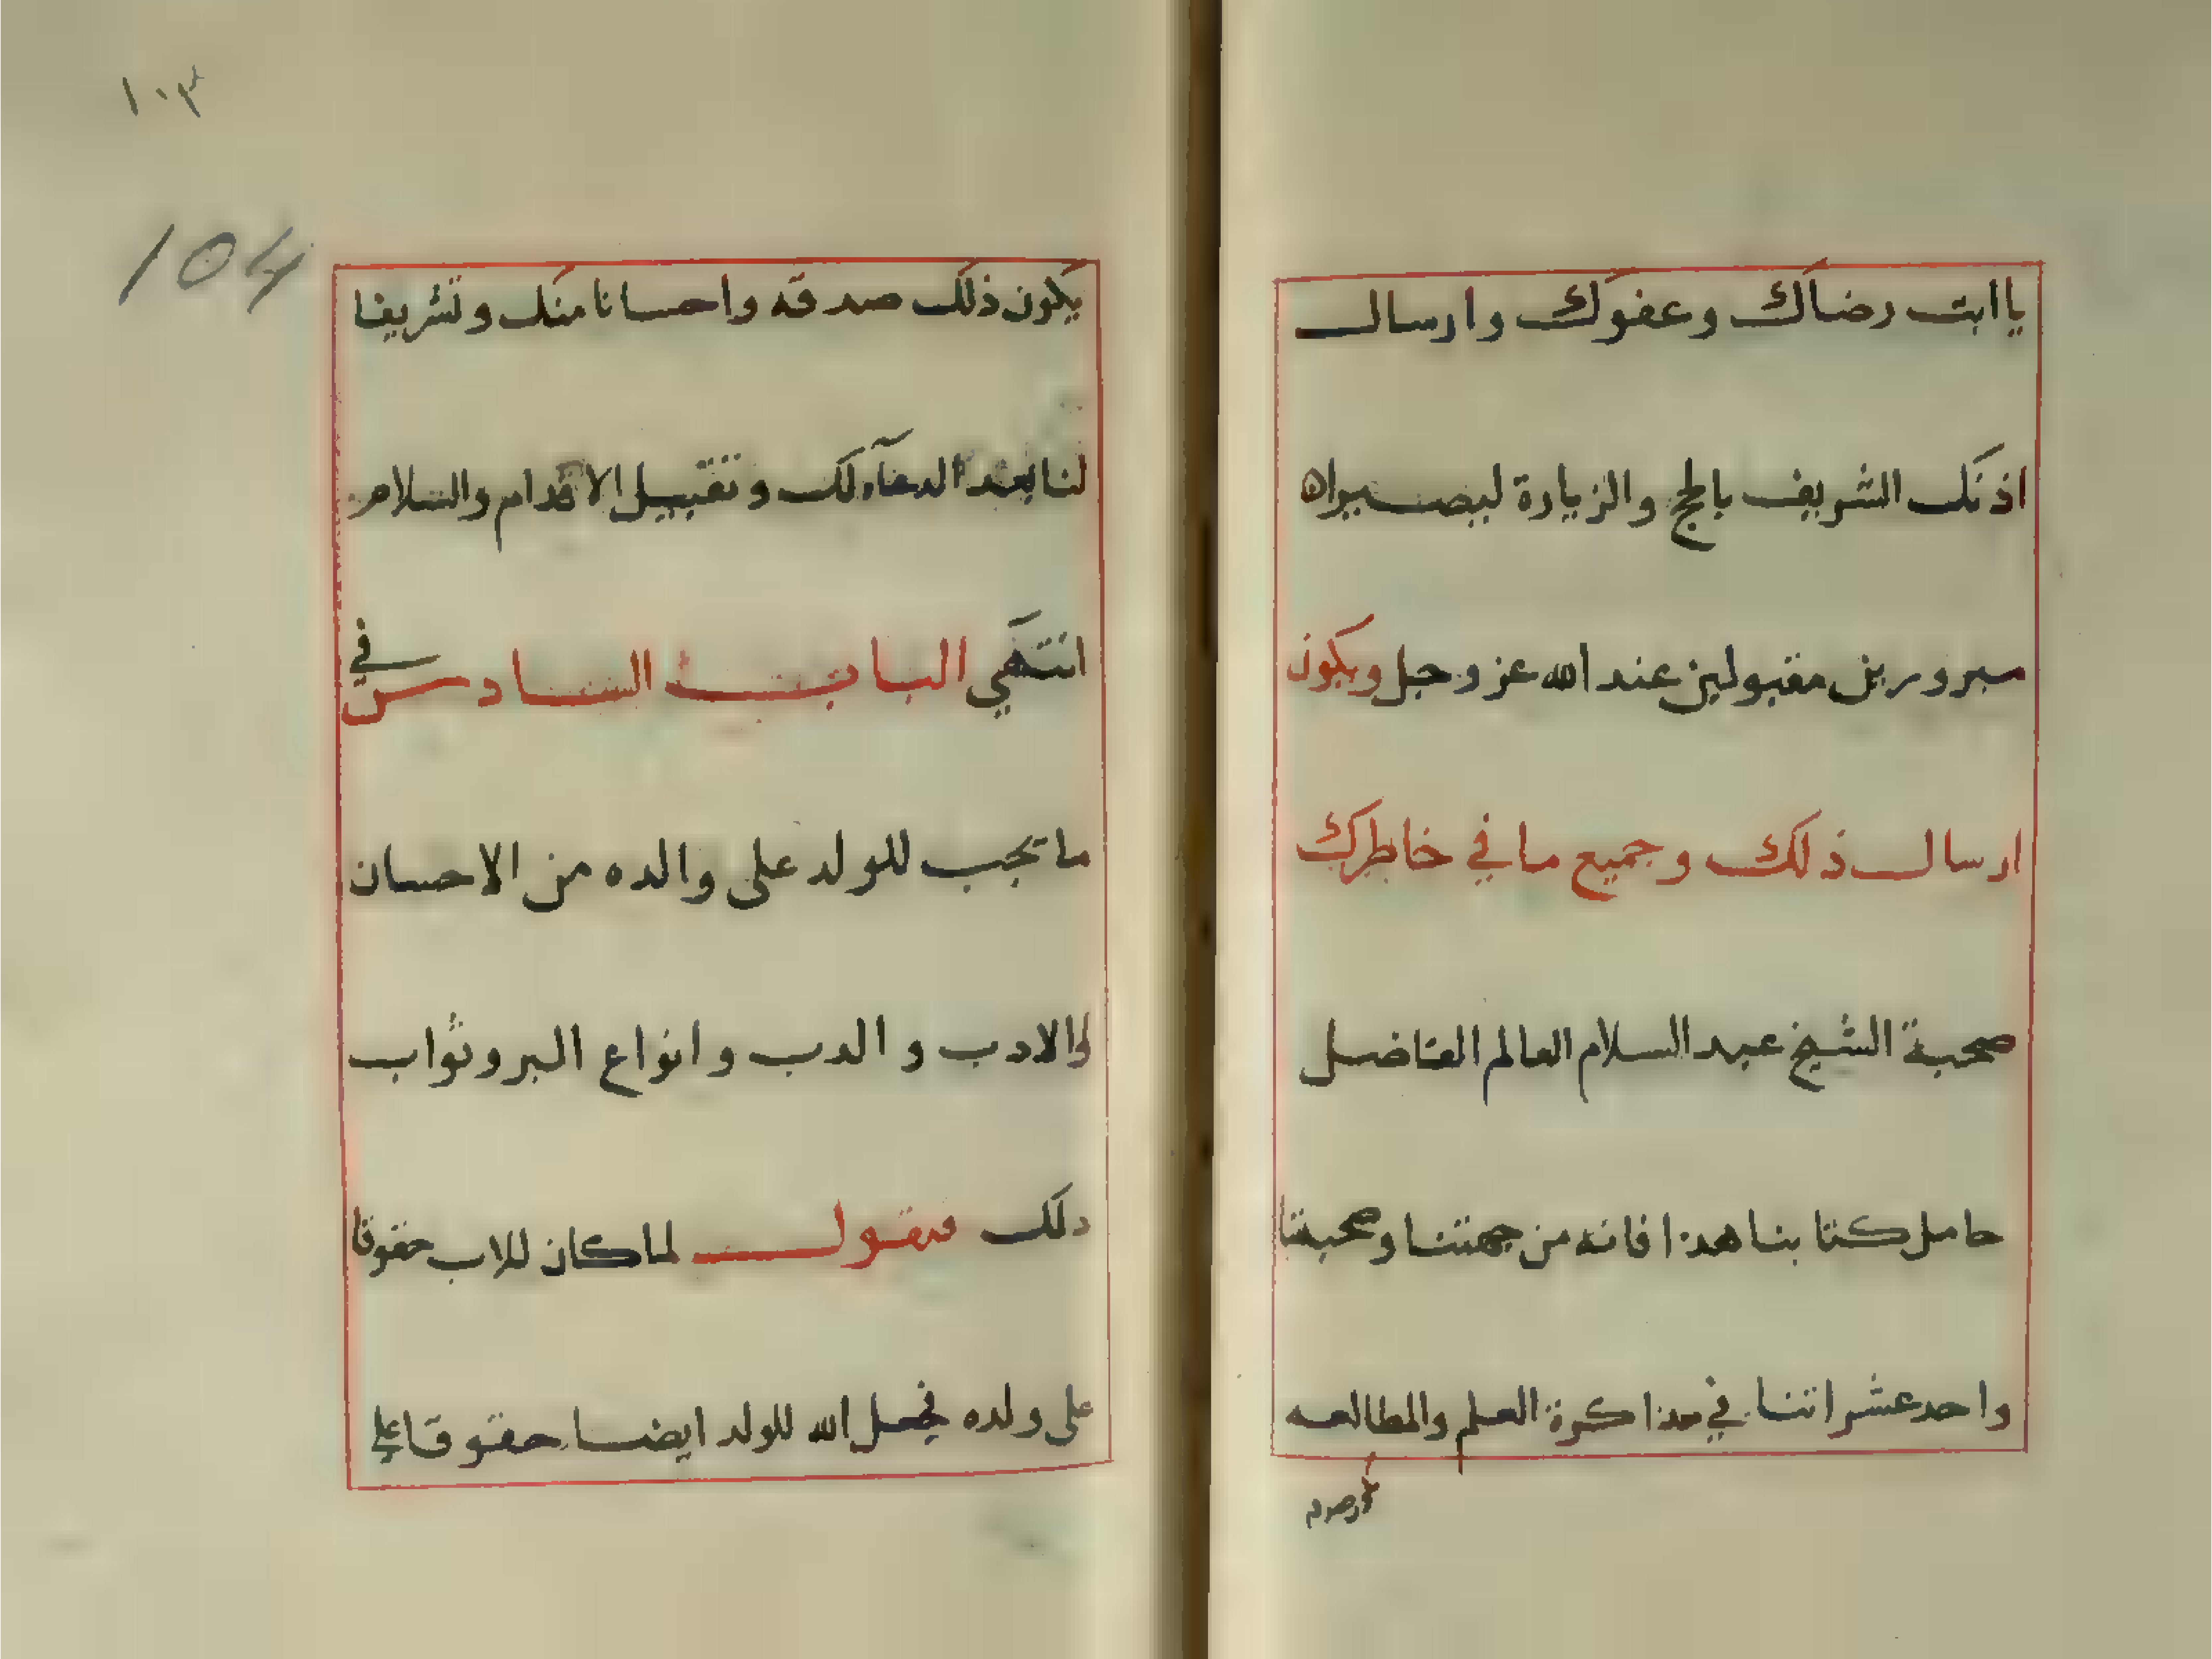 ياابت رضاك وعفوك وارسال
اذنك الشريف بالحج والزيارة ليصيراه
مبرورين مقبولين عند الله عز وجل ويكون
ارسال ذلك وجميع ما في خاطرك
صحبة الشيخ عبد السلام العالم الفاضل
حامل كتابنا هذا فانه من جهتنا وصحبتنا
واحد عشراتنا في مذاكرة العلم والمطالعه
١٠٣
104
يكون ذلك صدقه واحسانا منك وتشريفا
لنا بعد الدعآء لك وتقبيل الاقدام والسلام
انتهي الباب السادس في
ما تجب للولد على والده من الاحسان
والادب والدب وانواع البر وثواب
دلك فنقول لما كان للاب حقوقا
على ولده فجعل الله للولد ايضا حقوقا على